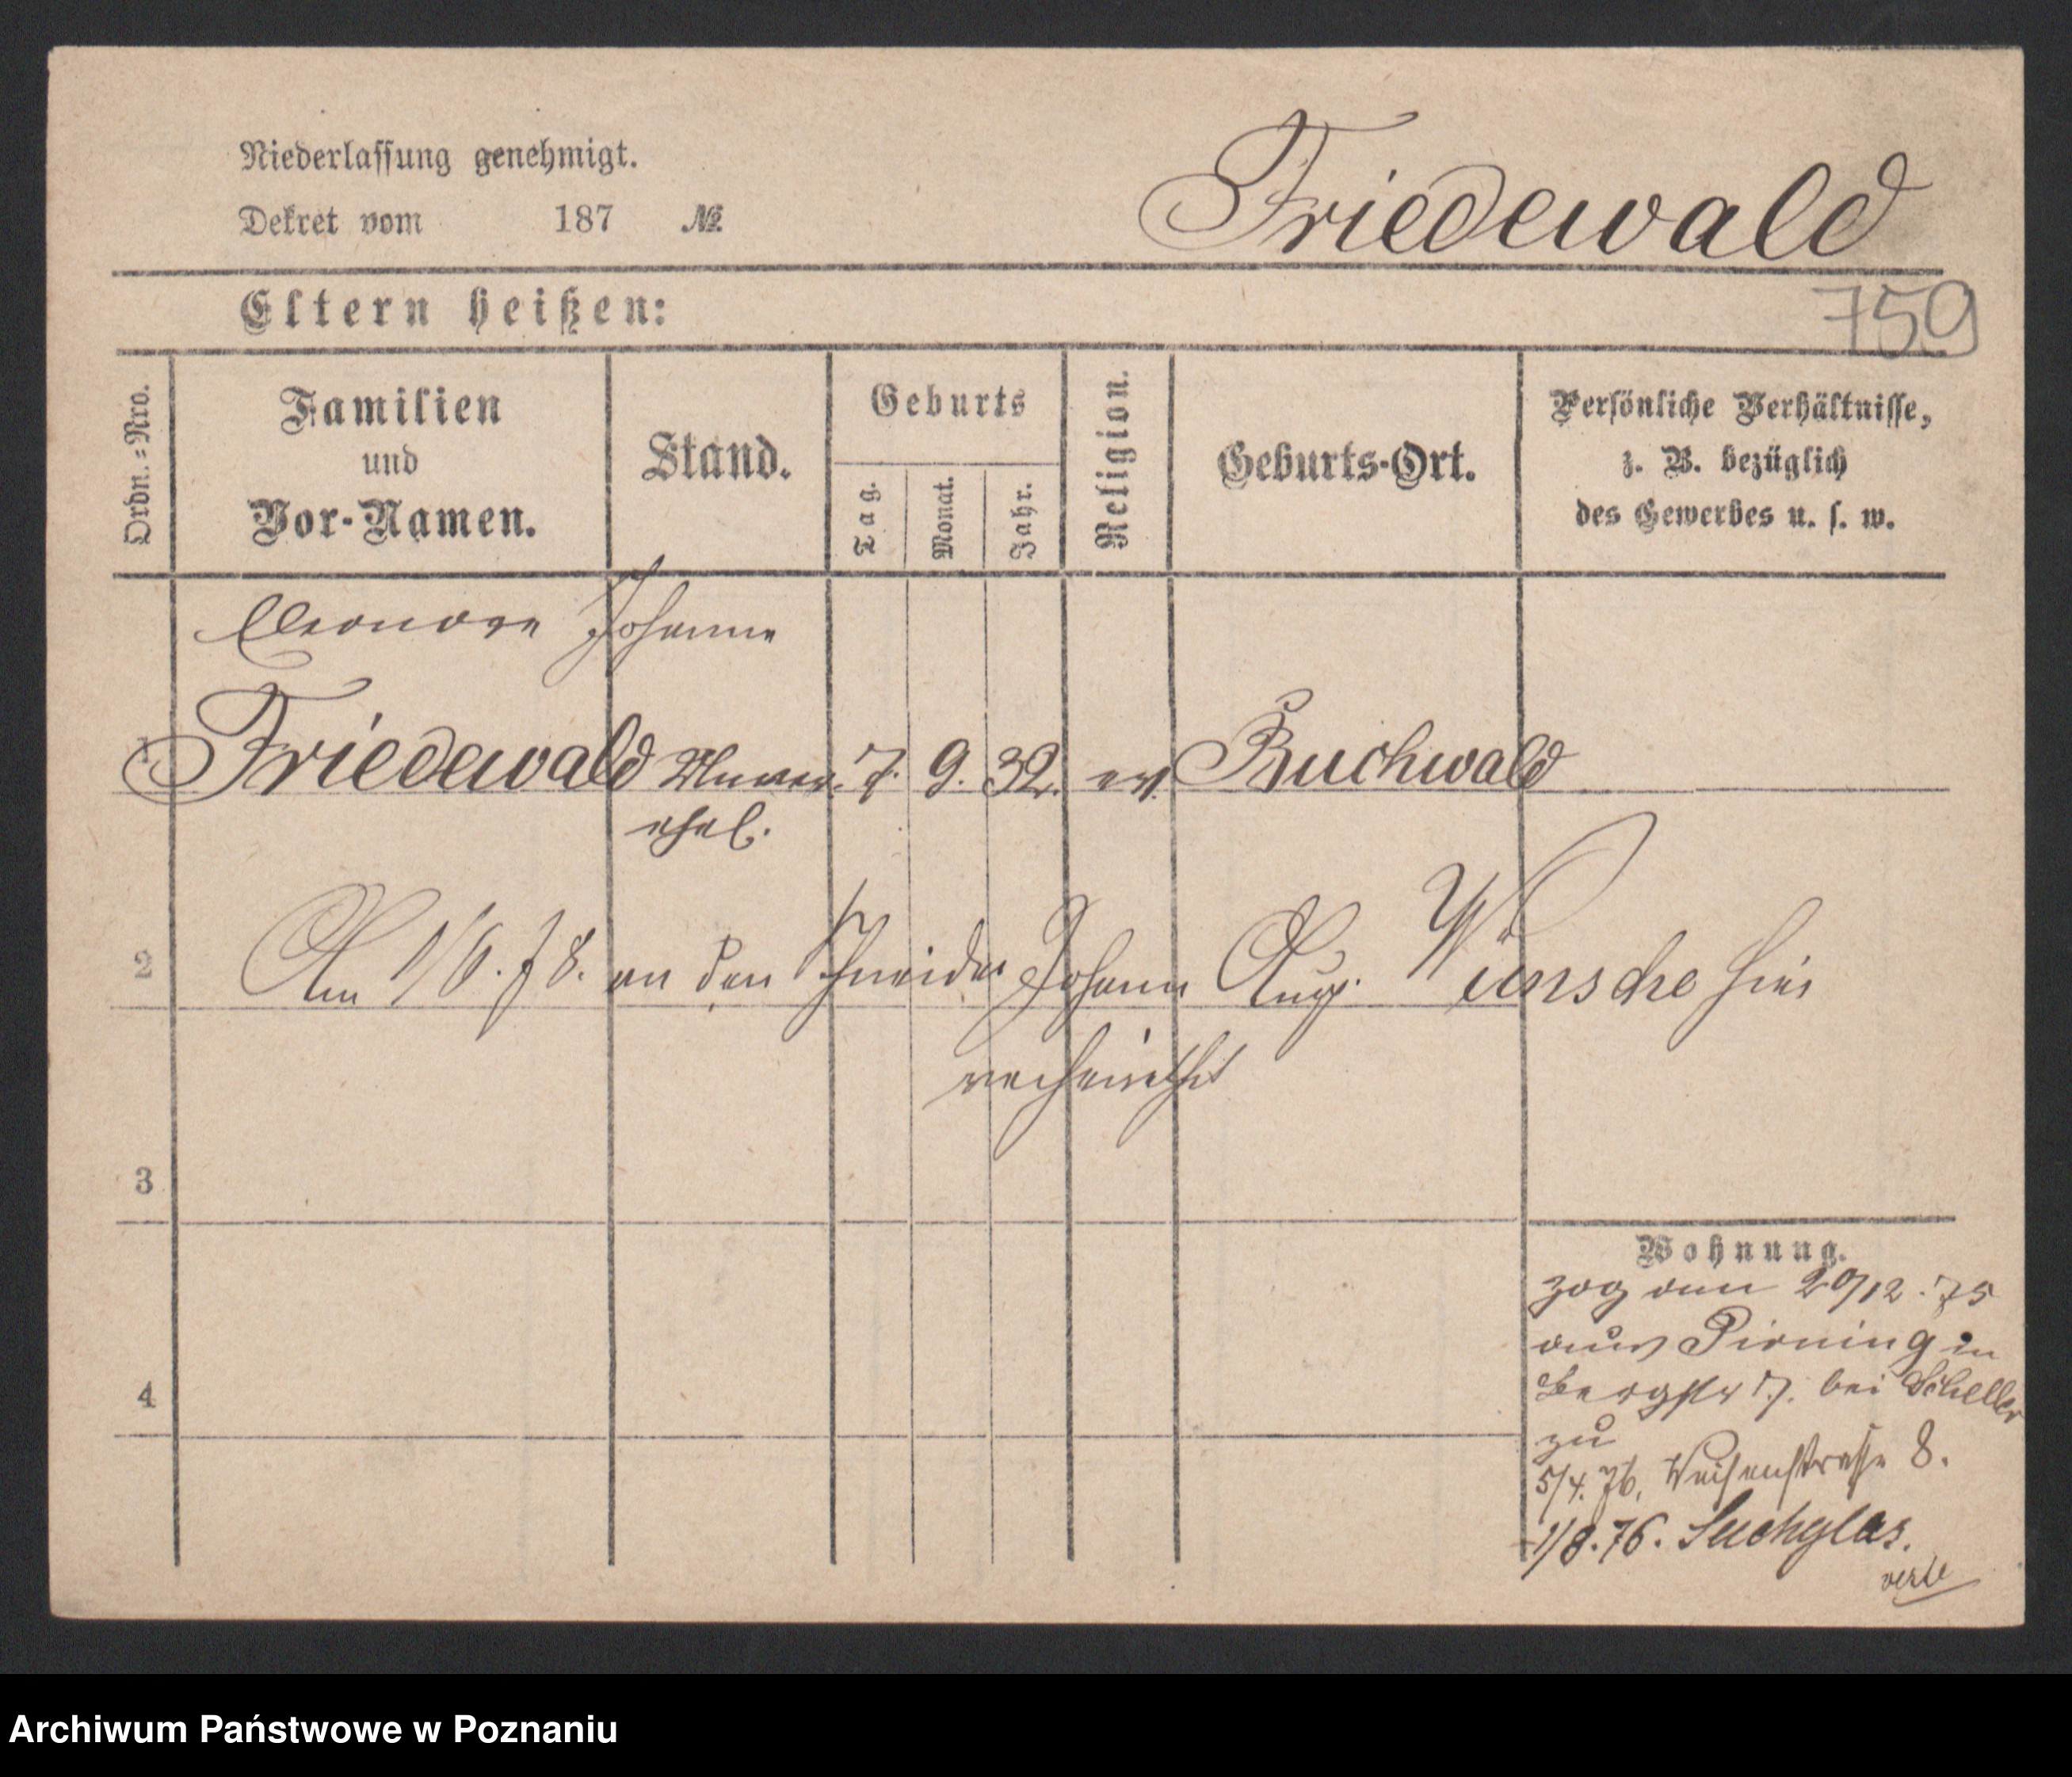 Niederlassung genehmigt.
Dekret vom 187 №
Friedewald
Eltern heißen:
759
Ordn.=Nro.
Familien
und
Vor-Namen.
Stand.
Geburts
Tag.
Monat.
Jahr.
Religion.
Geburts-Ort.
Persönliche Verhältnisse,
z. B. bezüglich
des Gewerbes u. s. w.
Eleonore Johanne
1 Friedewald Unver 7. 9. 32. ev. Buchwald
ehel.
2 Am 1/6. 78. an den Schneider Johann Aug. Wünsche hier
verheirathet
3
Wohnung.
zog am 20/12. 75
aus in
4 Bergstr 7. bei Scheller
zu
5/4. 76. 8.
1/8. 76.
verte
Archiwum Państwowe w Poznaniu